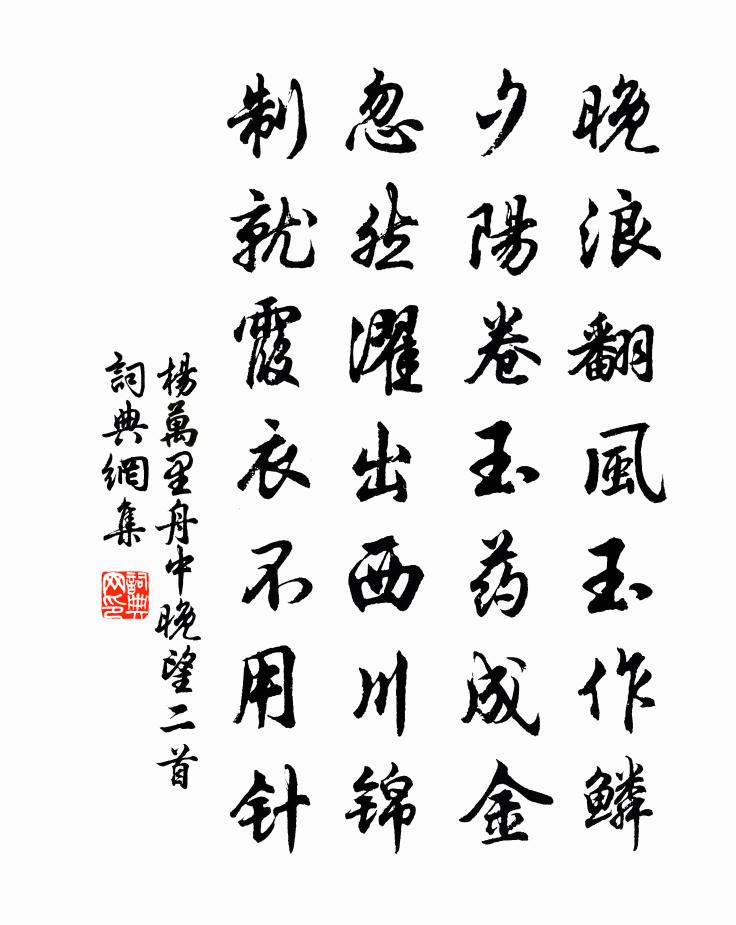 晚浪翻風玉作鱗
夕陽卷玉药成金
忽然濯出西川锦
制就霞衣不用针
楊萬里舟中晚望二首
詞典網集
詞典網印